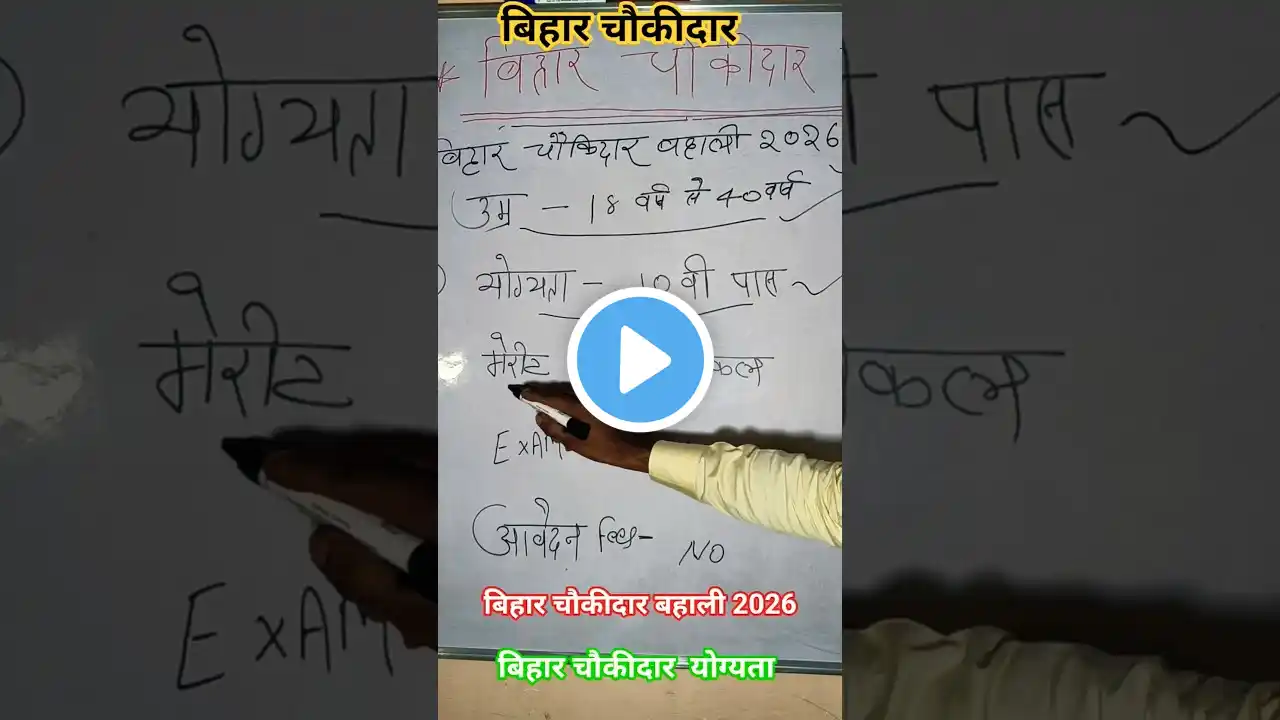 बिहार चौकीदार
* बिहार चौकीदार
बिहार चौकिदार बहाली 2026
उम्र - 18 वर्ष से 40 वर्ष
योग्यता - 10 वी पास
मेरीट
EXAM
आवेदन fees - NO
बिहार चौकीदार बहाली 2026
बिहार चौकीदार योग्यता